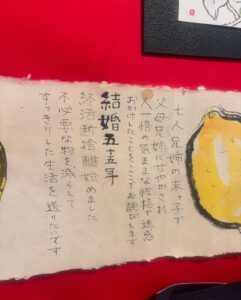 七人兄姉の末っ子で
父母兄姉に甘やかされ
人一倍の気ままな性格で迷惑
おかけしたことをここでお詫びします
結婚五十五年
終活断捨離始めました
不必要な物を減らして
すっきりした生活を送りたいです